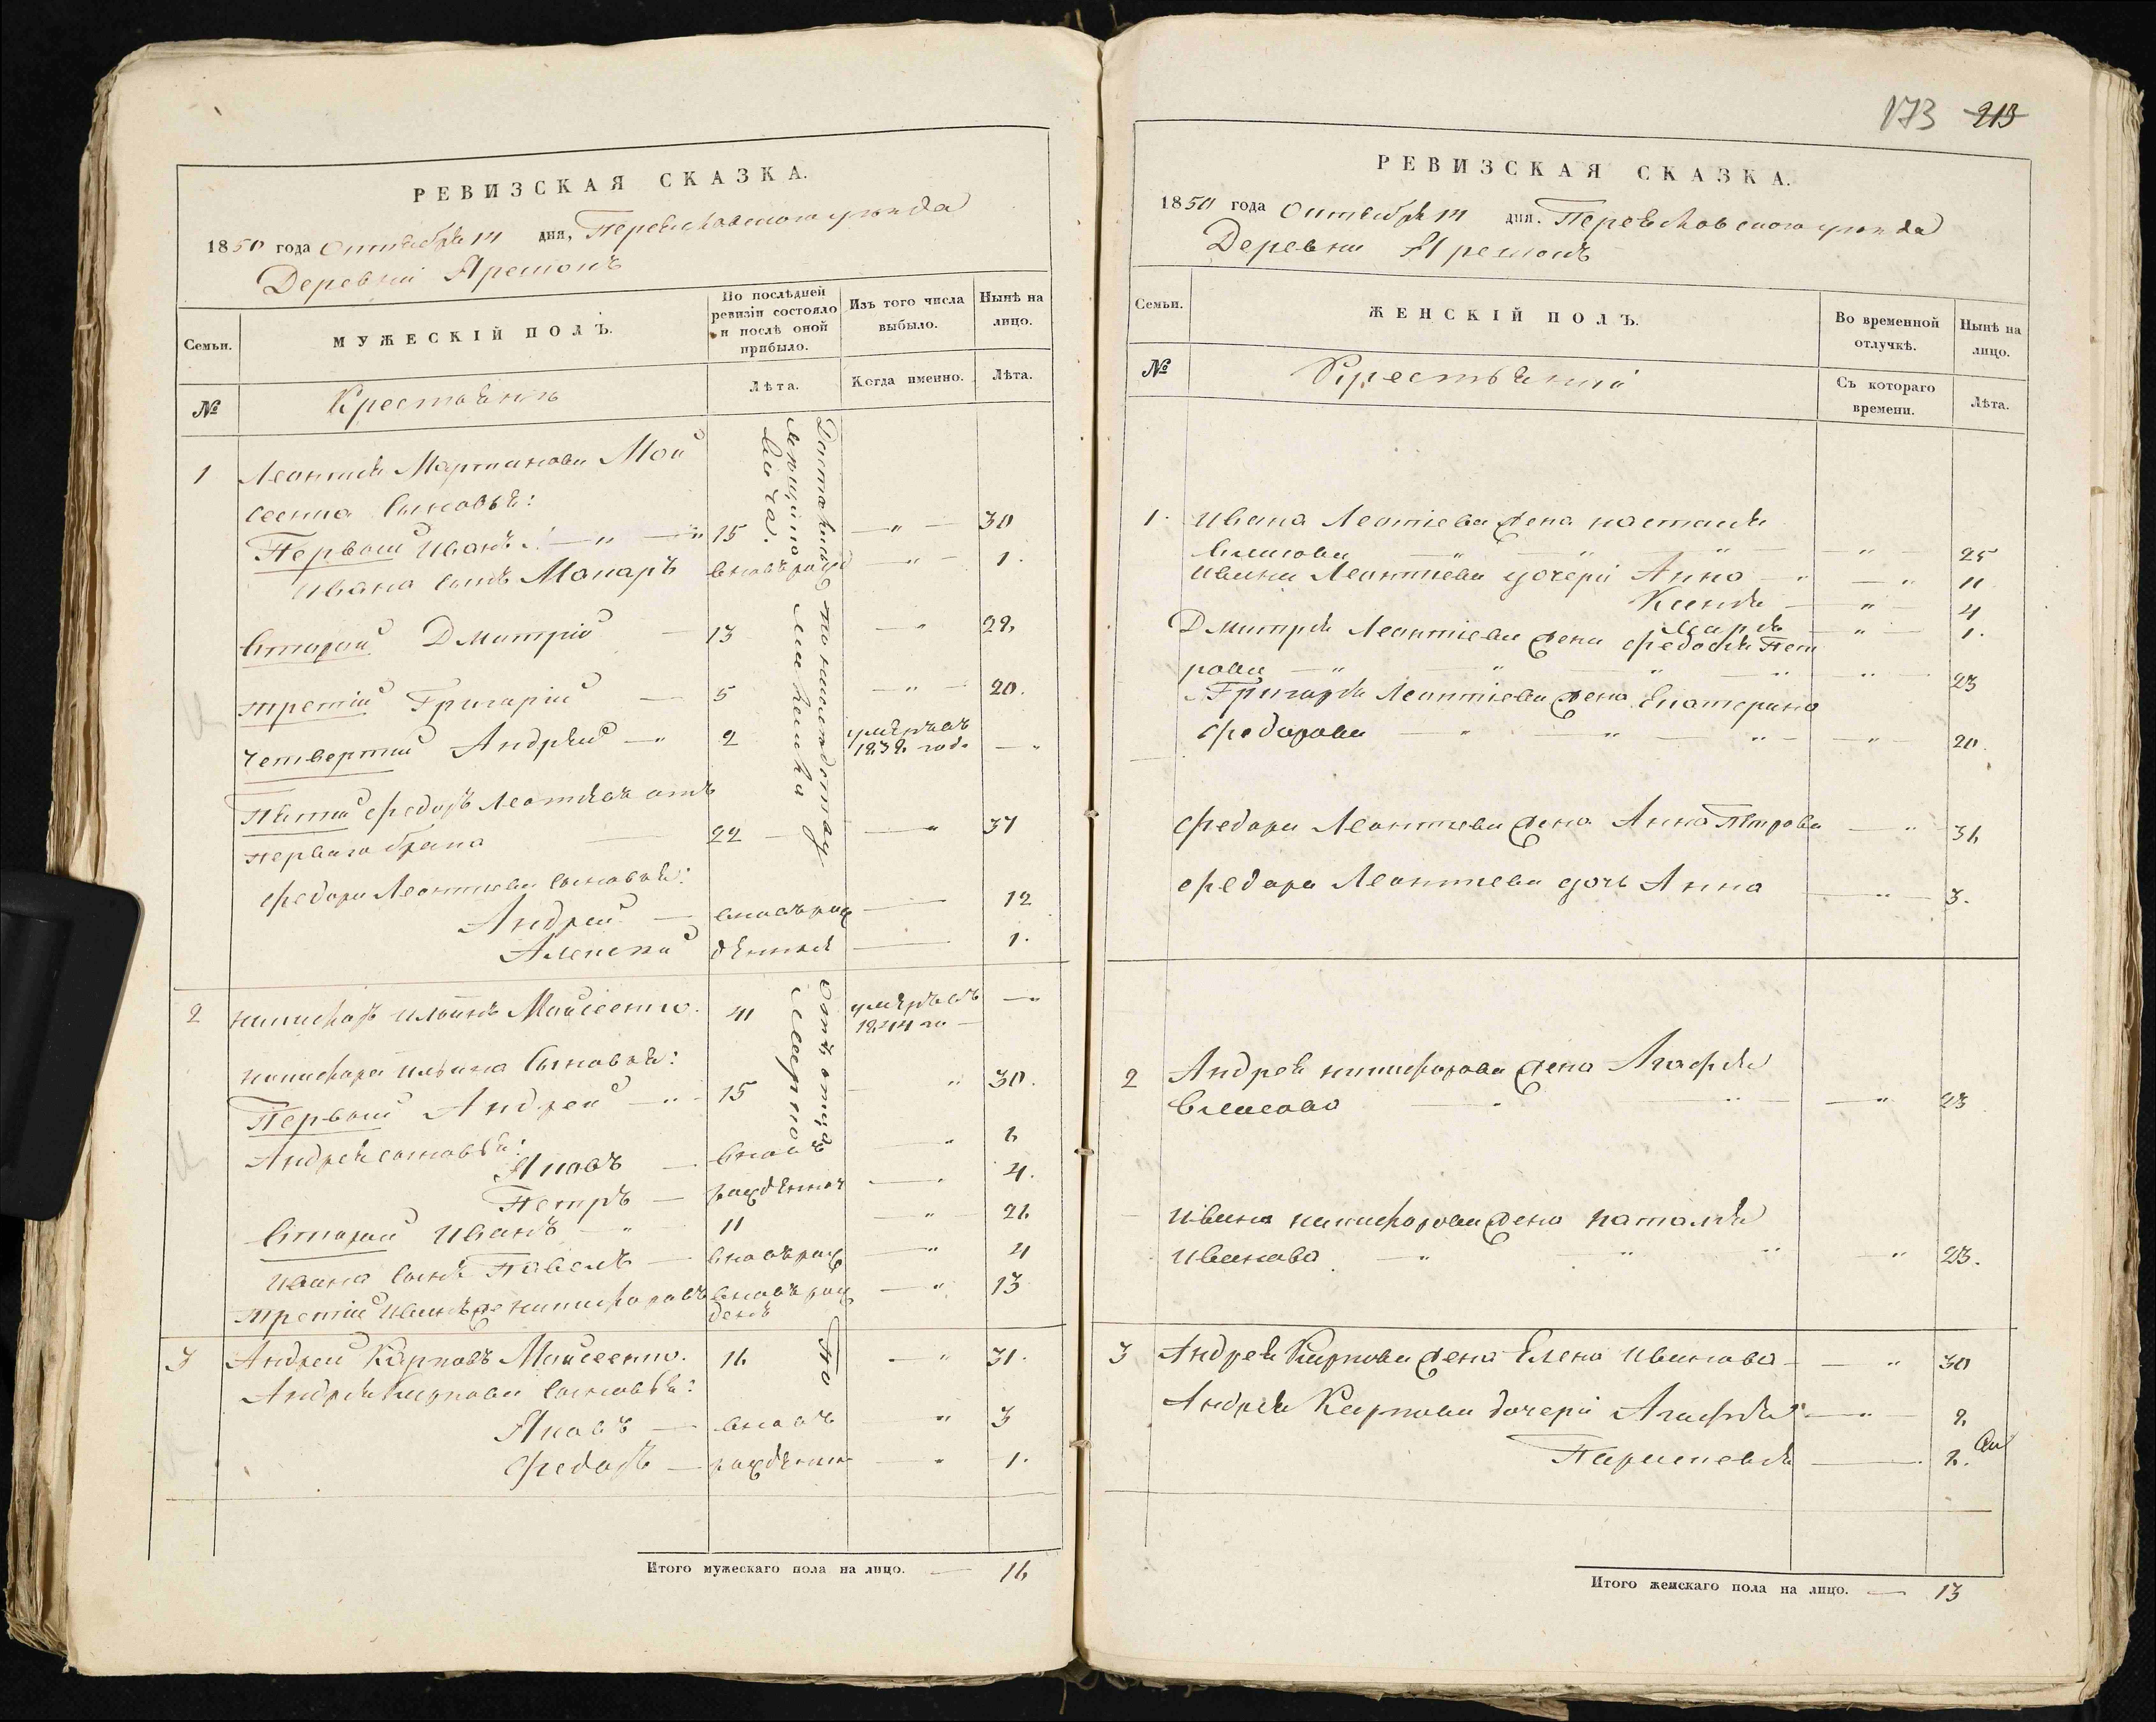 РЕВИЗСКАЯ СКАЗКА.
1850 года Октября дня, Переяславского уѣзда
Деревни Яремокъ
Семьи.
МУЖЕСКІЙ ПОЛЪ.
По послѣдней ревизіи состояло и послѣ оной прибыло.
Изъ того числа выбыло.
Нынѣ на лицо.
№
Крестьянъ
Лѣта.
Когда именно.
Лѣта.
1 Леонтія Мартинова Мой
сеенка сыновья:
Первый Иванъ 15 — " — 30
Ивана сынъ Макаръ вновь рожд — " — 1.
Вторый Дмитрій — 13 — "
третій Григорій — 5 — " — 20.
четвертый Андрей — " 2 умеръ въ году — "
Пятый Федоръ Леонтьевъ отъ
перваго брака 22 — " 37
Федора Леонтьева сыновья:
Андрей — вновь рож — 12
Алексей денные — 1.
2 Никифоръ Ильинъ Мойсеенко. умеръ въ — "
Никифора Ильина сыновья:
Первый Андрей — " — 15 " 30.
Андрея сыновья:
Яковъ — вновь — "
Петръ — рожденные — 4.
Вторый Иванъ — " — 11 — "
Ивана сынъ Павелъ — вновь рож — " 4
третій Иванъ же Никифоровъ вновь рож — " 13
денъ
3 Андрей Карповъ Мойсеенко. 16 — " 31.
Андрея Карпова сыновья:
Яковъ — вновь " 3
Федоръ — рожденные — " 1.
Итого мужескаго пола на лицо. — 16
173 213
РЕВИЗСКАЯ СКАЗКА.
1850 года Октября дня. Переяславского уѣзда
Деревни Яремокъ
Семьи.
ЖЕНСКІЙ ПОЛЪ.
Во временной отлучкѣ.
Нынѣ на лицо.
№
Крестьянки
Съ котораго времени.
Лѣта.
1. Ивана Леонтіева жена Настасія
— " — 25
Ивана Леонтиева дочери Анна — " — " 11
Ксенія — " — 4
Марія — " — 1.
Дмитрія Леонтіева жена Федосія Пет
рова — " — 23
Григорія Леонтиева жена Екатерина
Федорова — " — 20.
Федора Леонтиева жена Анна Петрова — "
Федора Леонтиева дочь Анна — " — 3.
2 Андрея Никифорова жена Агафія
— " 23
Ивана Никифорова жена Наталія
Иванова — " 23.
3 Андрея Карпова жена Елена Иванова — — " 30
Андрея Карпова дочери Агафія — " —
Параскевія —
Итого женскаго пола на лицо. — 13